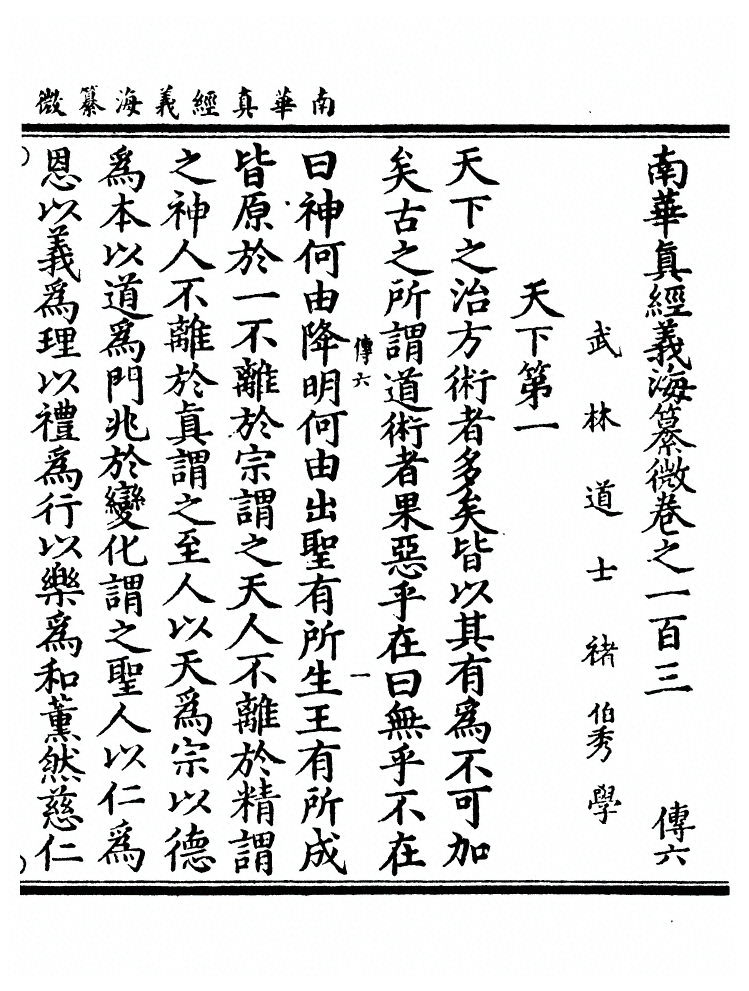 南華真經義海纂微
南華真經義海纂微卷之一百三　傳六
武林道士褚伯秀學
天下第一
天下之治方術者多矣皆以其有爲不可加
矣古之所謂道術者果惡乎在曰無乎不在
傳六　一
曰神何由降明何由出聖有所生王有所成
皆原於一不離於宗謂之天人不離於精謂
之神人不離於真謂之至人以天爲宗以德
爲本以道爲門兆於變化謂之聖人以仁爲
恩以義爲理以禮爲行以樂爲和薰然慈仁